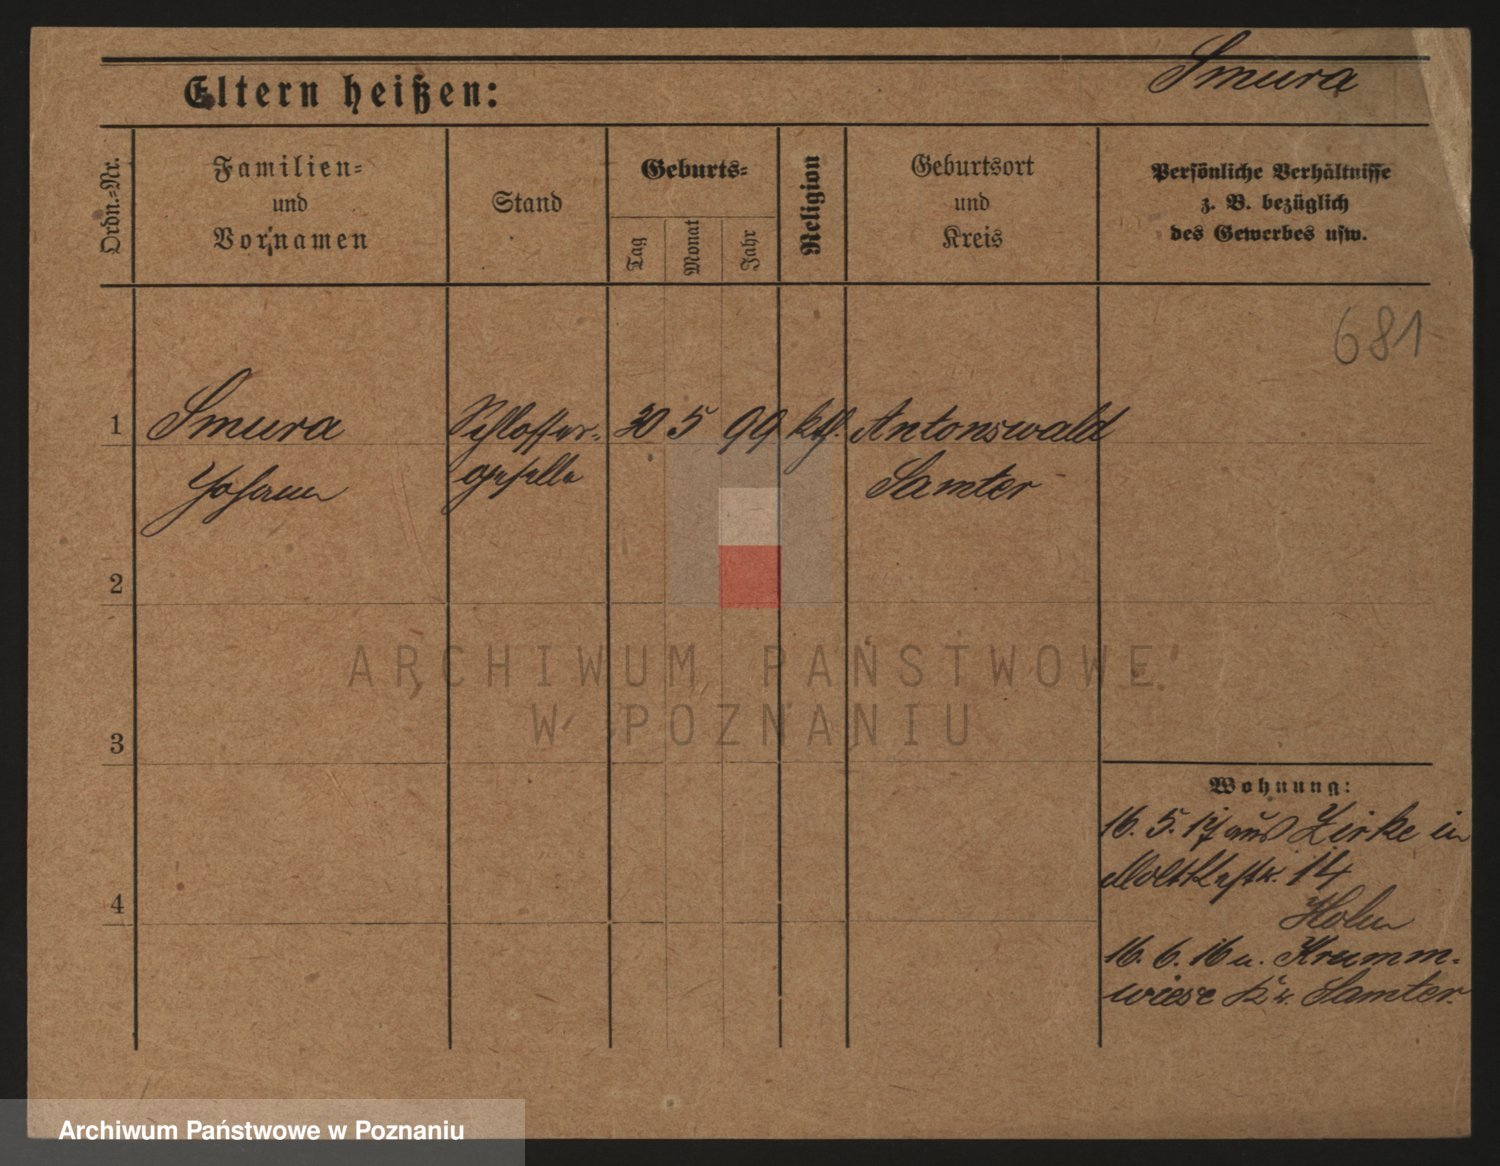 Smura
Eltern heißen:
Ordn.-Nr.
Familien-
und
Vornamen
Stand
Geburts-
Tag
Monat
Jahr
Religion
Geburtsort
und
Kreis
Persönliche Verhältnisse
z. B. bezüglich
des Gewerbes usw.
681
1 Smura Schlosser- 30 5 99 kth. Antonswald
Johann geselle Samter
2
3
4
ARCHIWUM PAŃSTWOWE
W POZNANIU
Wohnung:
16. 5. 17 aus Zirke in
Moltkestr. 14
16. 6. 16 n. Krumm-
wiese Kr. Samter.
Archiwum Państwowe w Poznaniu